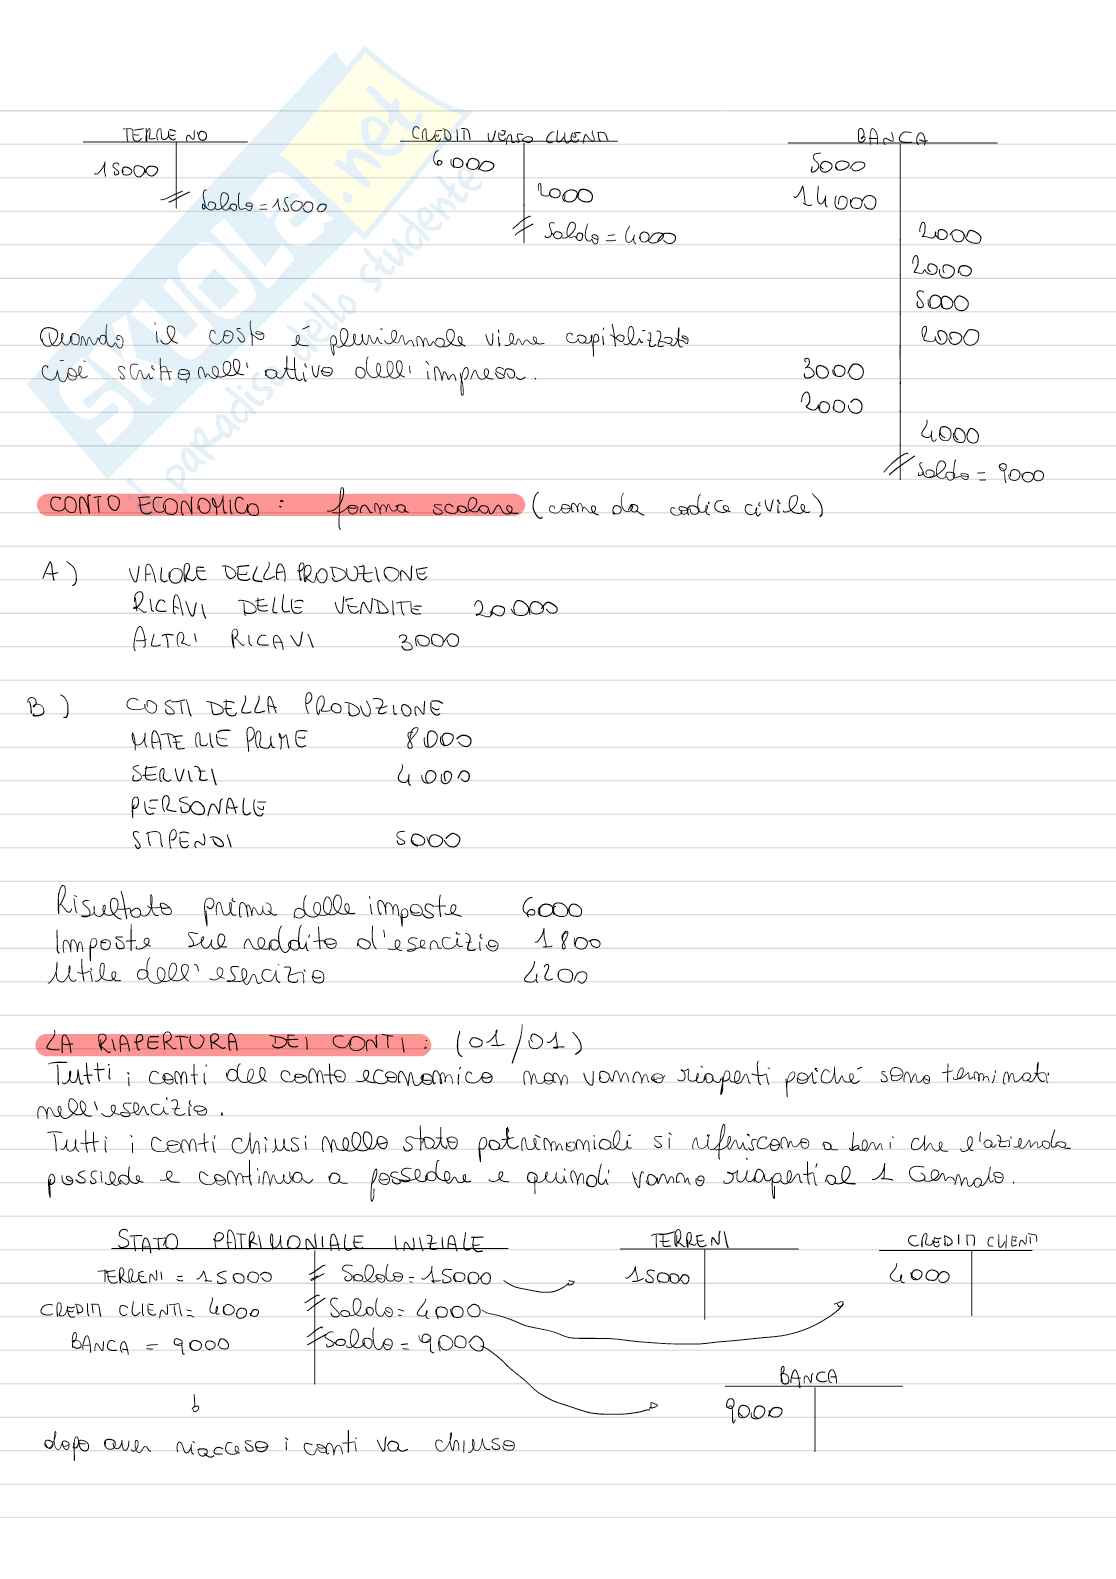 TERRENO CREDITI VERSO CLIENTI BANCA
15000 6000 5000
Saldo = 15000 2000 14000
Saldo = 4000 2000
2000
5000
Quando il costo é pluriennale viene capitalizzato 2000
cioè scritto nell' attivo dell' impresa. 3000
2000
4000
Saldo = 9000
CONTO ECONOMICO : forma scalare (come da codice civile)
A) VALORE DELLA PRODUZIONE
RICAVI DELLE VENDITE 20000
ALTRI RICAVI 3000
B) COSTI DELLA PRODUZIONE
MATERIE PRIME 8000
SERVIZI 4000
PERSONALE
STIPENDI 5000
Risultato prima delle imposte 6000
Imposte sul reddito d'esercizio 1800
Utile dell' esercizio 4200
LA RIAPERTURA DEI CONTI : (01/01)
Tutti i conti del conto economico non vanno riaperti poiché sono terminati
nell'esercizio.
Tutti i conti chiusi nello stato patrimoniali si riferiscono a beni che l'azienda
possiede e continua a possedere e quindi vanno riaperti al 1 Gennaio.
STATO PATRIMONIALE INIZIALE TERRENI CREDITI CLIENTI
TERRENI = 15000 Saldo = 15000 15000 4000
CREDITI CLIENTI = 4000 Saldo = 4000
BANCA = 9000 Saldo = 9000
BANCA
9000
dopo aver riacceso i conti va chiuso
SKUOLA.net
il paradiso dello studente